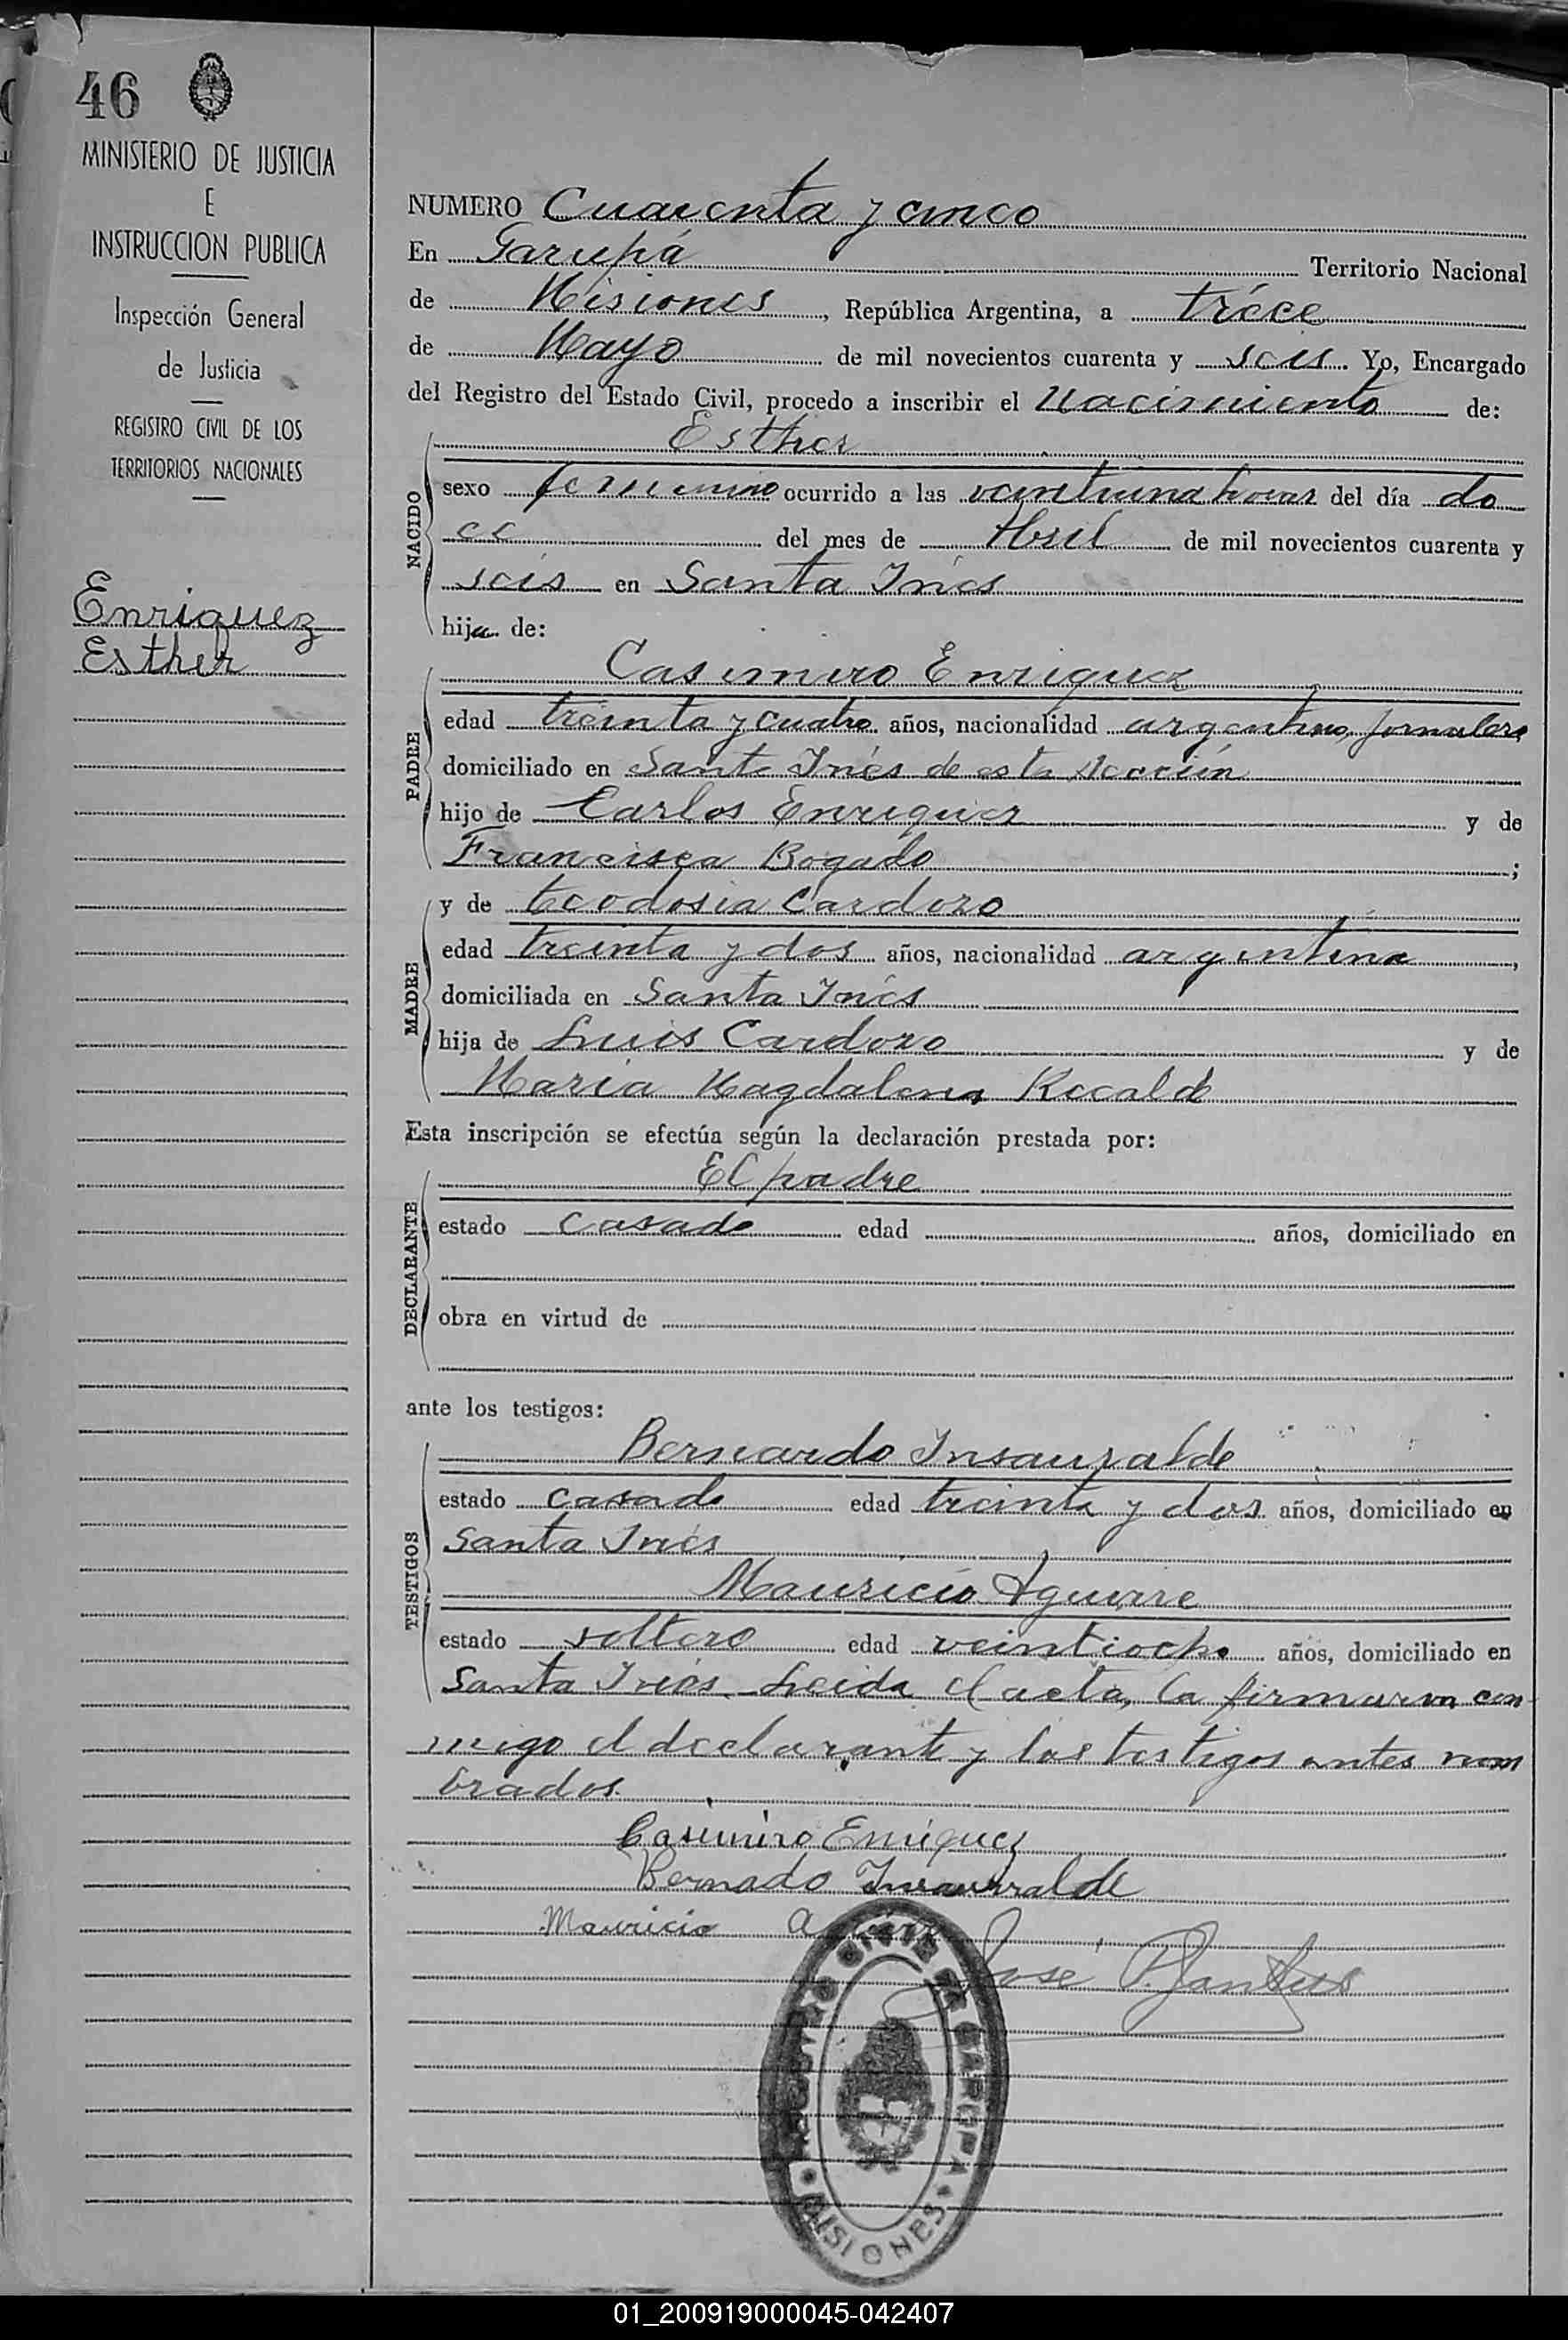 46
MINISTERIO DE JUSTICIA
E
INSTRUCCION PUBLICA
Inspección General
de Justicia
REGISTRO CIVIL DE LOS
TERRITORIOS NACIONALES
Enriquez
Esther
NUMERO Cuarenta y cinco
En Garupá Territorio Nacional
de Misiones, República Argentina, a trece
de Mayo de mil novecientos cuarenta y seis. Yo, Encargado
del Registro del Estado Civil, procedo a inscribir el Nacimiento de:
NACIDO
Esther
sexo femenino ocurrido a las veintiuna horas del día do
ce del mes de Abril de mil novecientos cuarenta y
seis en Santa Inés
hija de:
PADRE
Casimiro Enriquez
edad treinta y cuatro años, nacionalidad argentino, jornalero
domiciliado en Santa Inés de esta Sección
hijo de Carlos Enriquez y de
Francisca Bogado ;
MADRE
y de Teodosia Cardozo
edad treinta y dos años, nacionalidad argentina,
domiciliada en Santa Inés
hija de Luis Cardozo y de
Maria Magdalena Recalde
Esta inscripción se efectúa según la declaración prestada por:
DECLARANTE
El padre
estado casado edad años, domiciliado en
obra en virtud de
ante los testigos:
TESTIGOS
Bernardo Insaurralde
estado casado edad treinta y dos años, domiciliado en
Santa Inés
Mauricio Aguirre
estado soltero edad veintiocho años, domiciliado en
Santa Inés. Leida el acta, la firmaron con
migo el declarante y los testigos antes nom
brados.
Casimiro Enriquez
Bernado Insaurralde
Mauricio Aguirre
José P.
REGISTRO CIVIL DE GARUPA
MISIONES
01_200919000045-042407